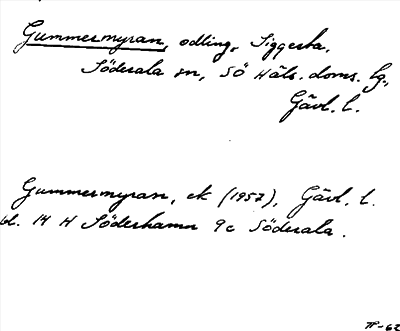 Gummermyran, odling, Siggesta,
Söderala sn, SÖ Häls. doms. lg.,
Gävl. l.
Gummermyran, ek (1957), Gävl. l.
bl. 14 H Söderhamn 9c Söderala.
TP-62